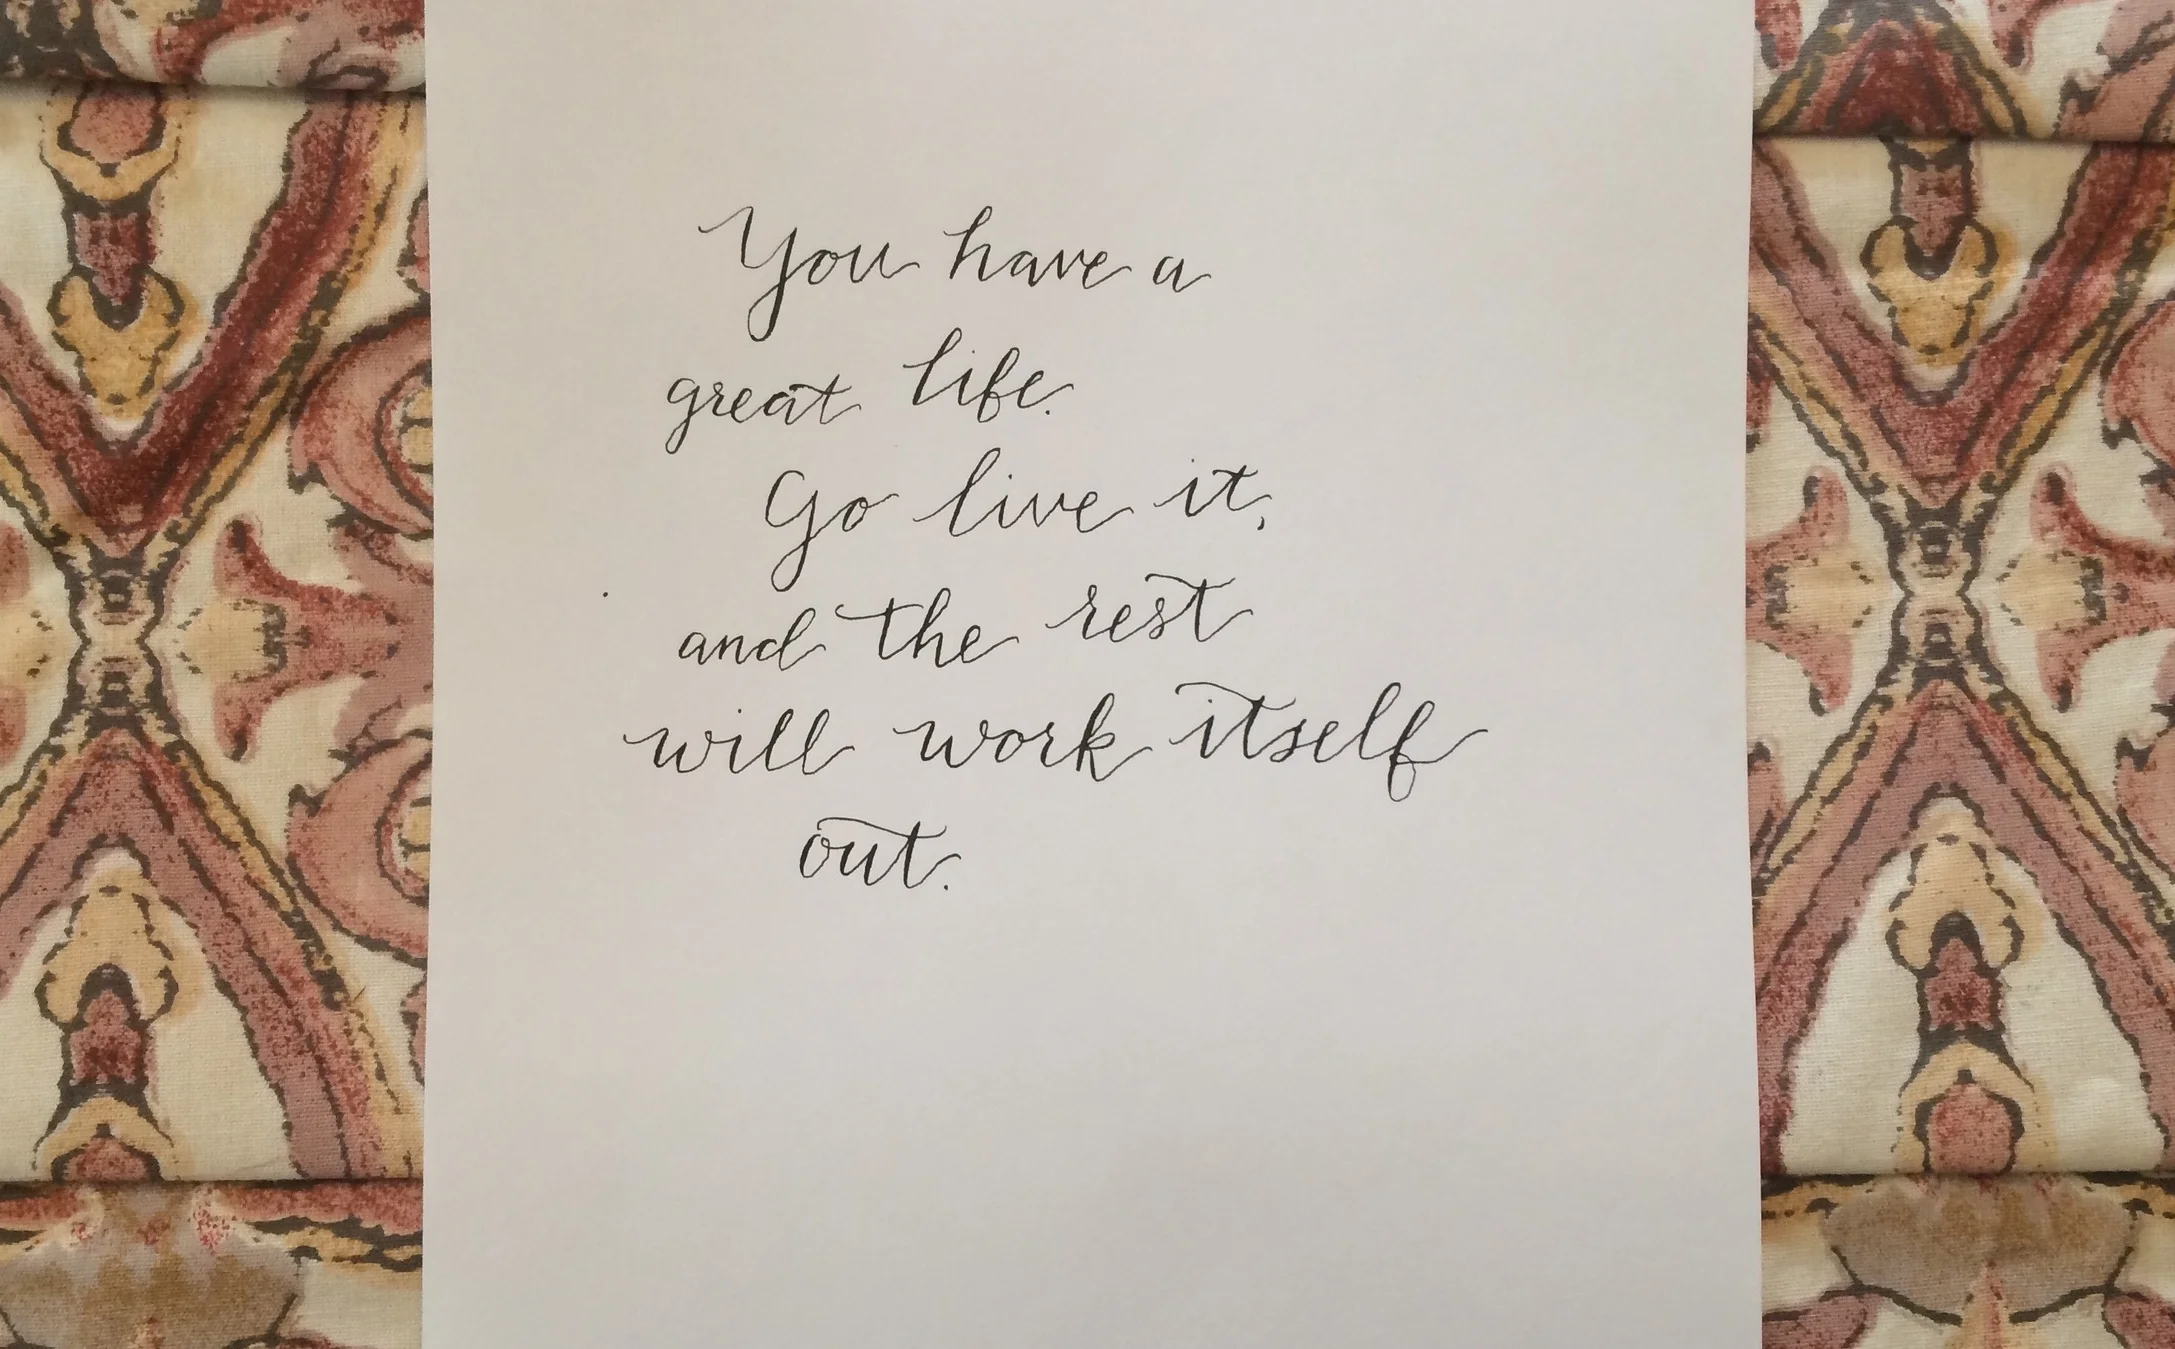 You have a
great life.
Go live it,
and the rest
will work itself
out.